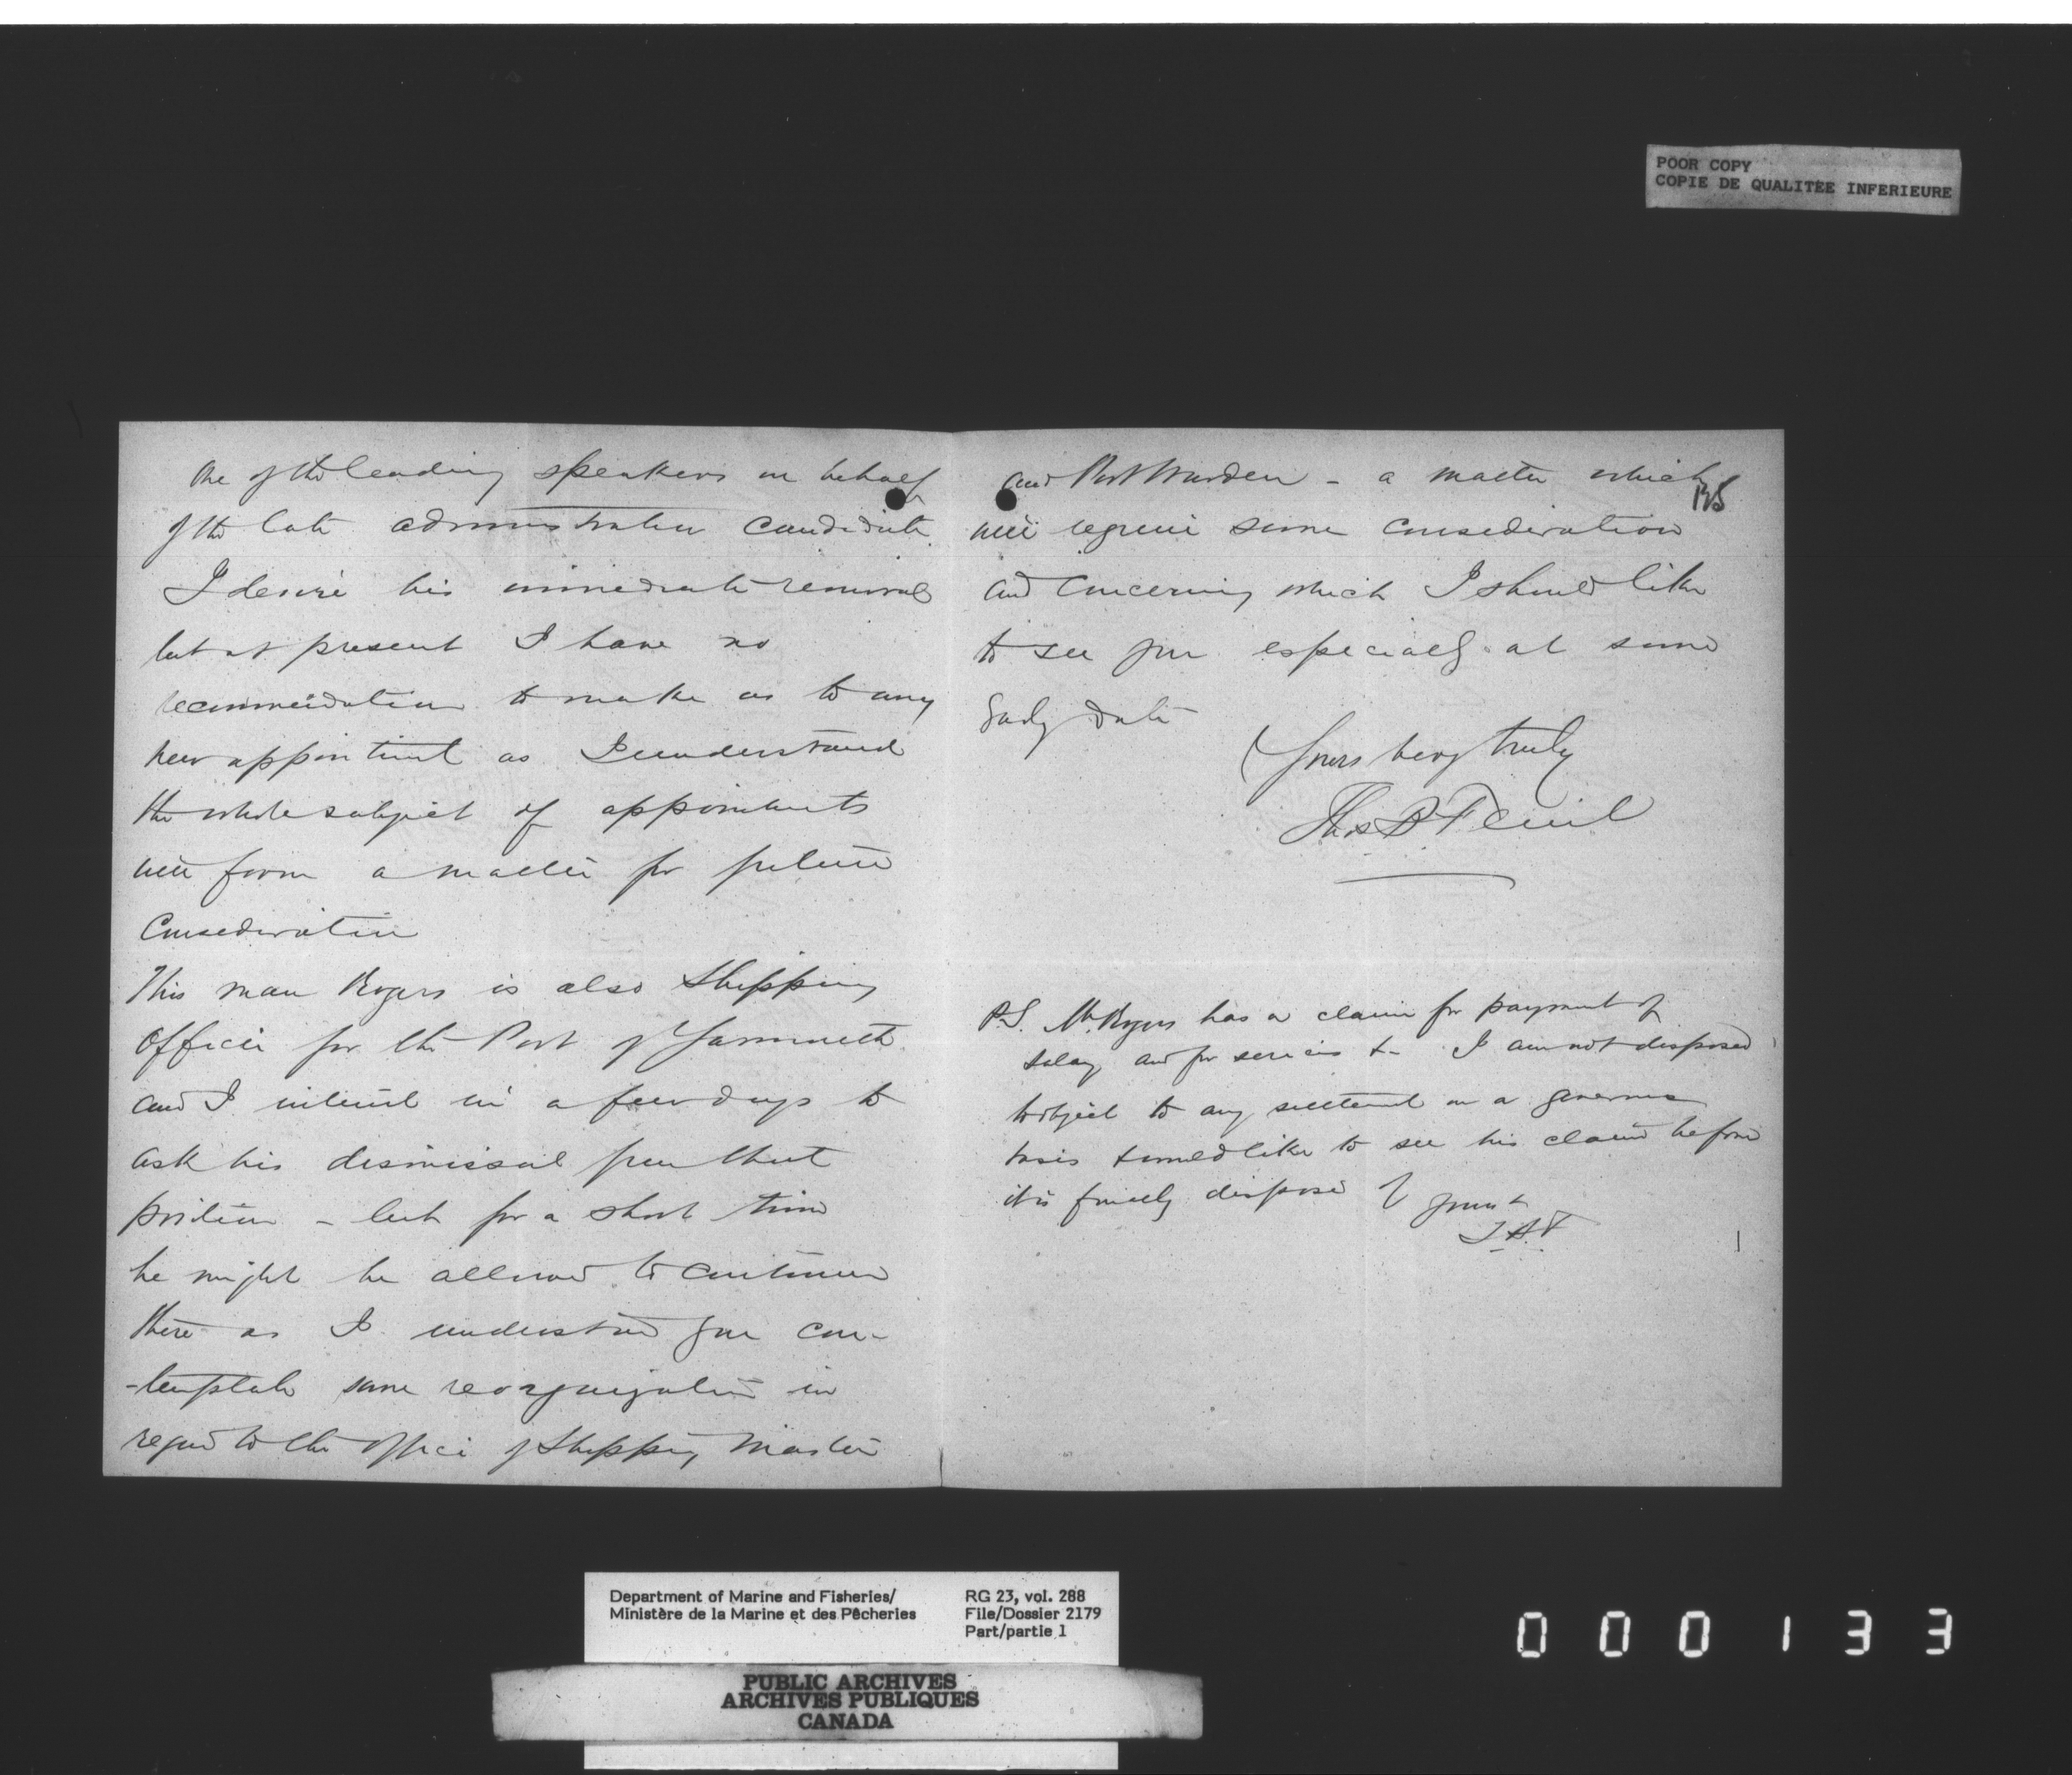 POOR COPY
COPIE DE QUALITEE INFERIEURE
One of the leading speakers on behalf
of the late administration candidate.
I desire his immediate removal
but at present I have no
recommendation to make as to any
new appointment as I understand
the whole subject of appointments
will form a matter for future
Consideration
This man Rogers is also Shipping
Officer for the Port of Yarmouth
and I intend in a few days to
ask his dismissal from that
position - but for a short time
he might be allowed to continue
there as I understand you con-
-template some reorganization in
regard to the office of Shipping Master
135
and Port Warden - a matter which
will require some consideration
and concerning which I should like
to see you especially at some
early date
Yours very truly
Thos B Flint
P.S. Mr. Rogers has a claim for payment of
salary and for services &- I am not disposed
to object to any settlement on a generous
basis & would like to see his claim before
it is finally disposed of
T.B.F
Department of Marine and Fisheries/
Ministère de la Marine et des Pêcheries
RG 23, vol. 288
File/Dossier 2179
Part/partie 1
PUBLIC ARCHIVES
ARCHIVES PUBLIQUES
CANADA
000133